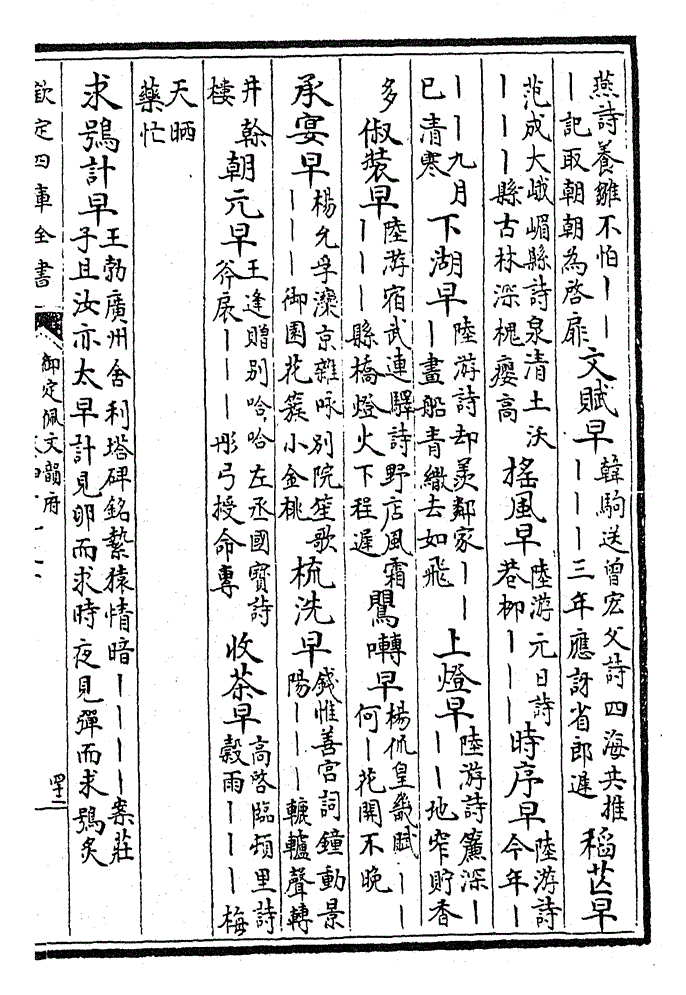 燕詩養雛不怕｜｜｜記取朝朝為啓扉 文賦早 韓駒送曾宏父詩四海共推｜｜｜三年應訝省郎遲 稻芒早
范成大峨嵋縣詩泉清土沃｜｜｜縣古林深槐癭高 搖風早 陸游元日詩巷栁｜｜｜ 時序早 陸游詩今年｜
｜｜九月已清寒 下湖早 陸游詩却羨鄰家｜｜｜畫船青繖去如飛 上燈早 陸游詩簾深｜｜｜地窄貯香
多 俶裝早 陸游宿武連驛詩野店風霜｜｜｜縣橋燈火下程遲 鸎囀早 楊侃皇畿賦｜｜何｜花開不晚
承宴早 楊允孚灤京雜咏别院笙歌｜｜｜御園花簇小金桃 梳洗早 錢惟善宫詞鐘動景陽｜｜｜轆轤聲轉
井榦樓 朝元早 王逢贈别哈哈左丞國寶詩斧扆｜｜｜彤弓授命專 收茶早 高啓臨頓里詩榖雨｜｜｜梅
天晒藥忙
求鴞計早 王勃廣州舍利塔碑銘縶猿情暗｜｜｜｜案莊子且汝亦太早計見卵而求時夜見彈而求鴞炙
欽定四庫全書 御定佩文韻府 四十二